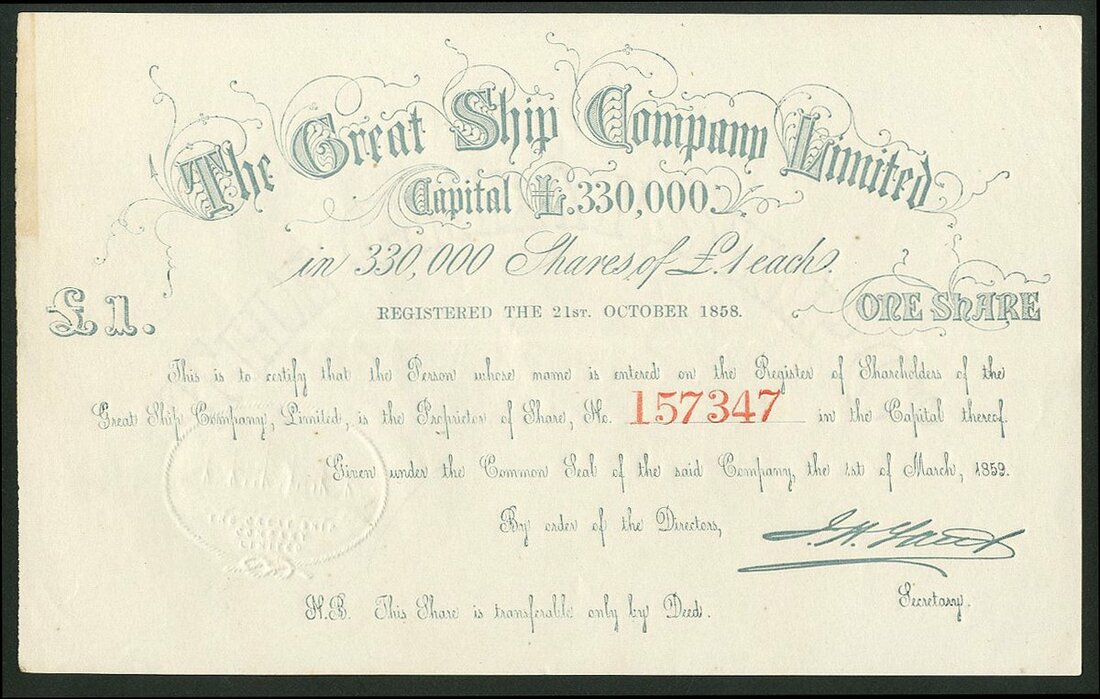 The Great Ship Company Limited
Capital £.330,000.
in 330,000 Shares of £.1 each.
£1.
REGISTERED THE 21ST. OCTOBER 1858.
ONE SHARE
This is to certify that the Person whose name is entered on the Register of Shareholders of the
Great Ship Company, Limited, is the Proprietor of Share, No. 157347 in the Capital thereof.
Given under the Common Seal of the said Company, the 1st of March, 1859.
By order of the Directors,
Secretary.
N.B. This Share is transferable only by Deed.
THE GREAT SHIP
COMPANY
LIMITED